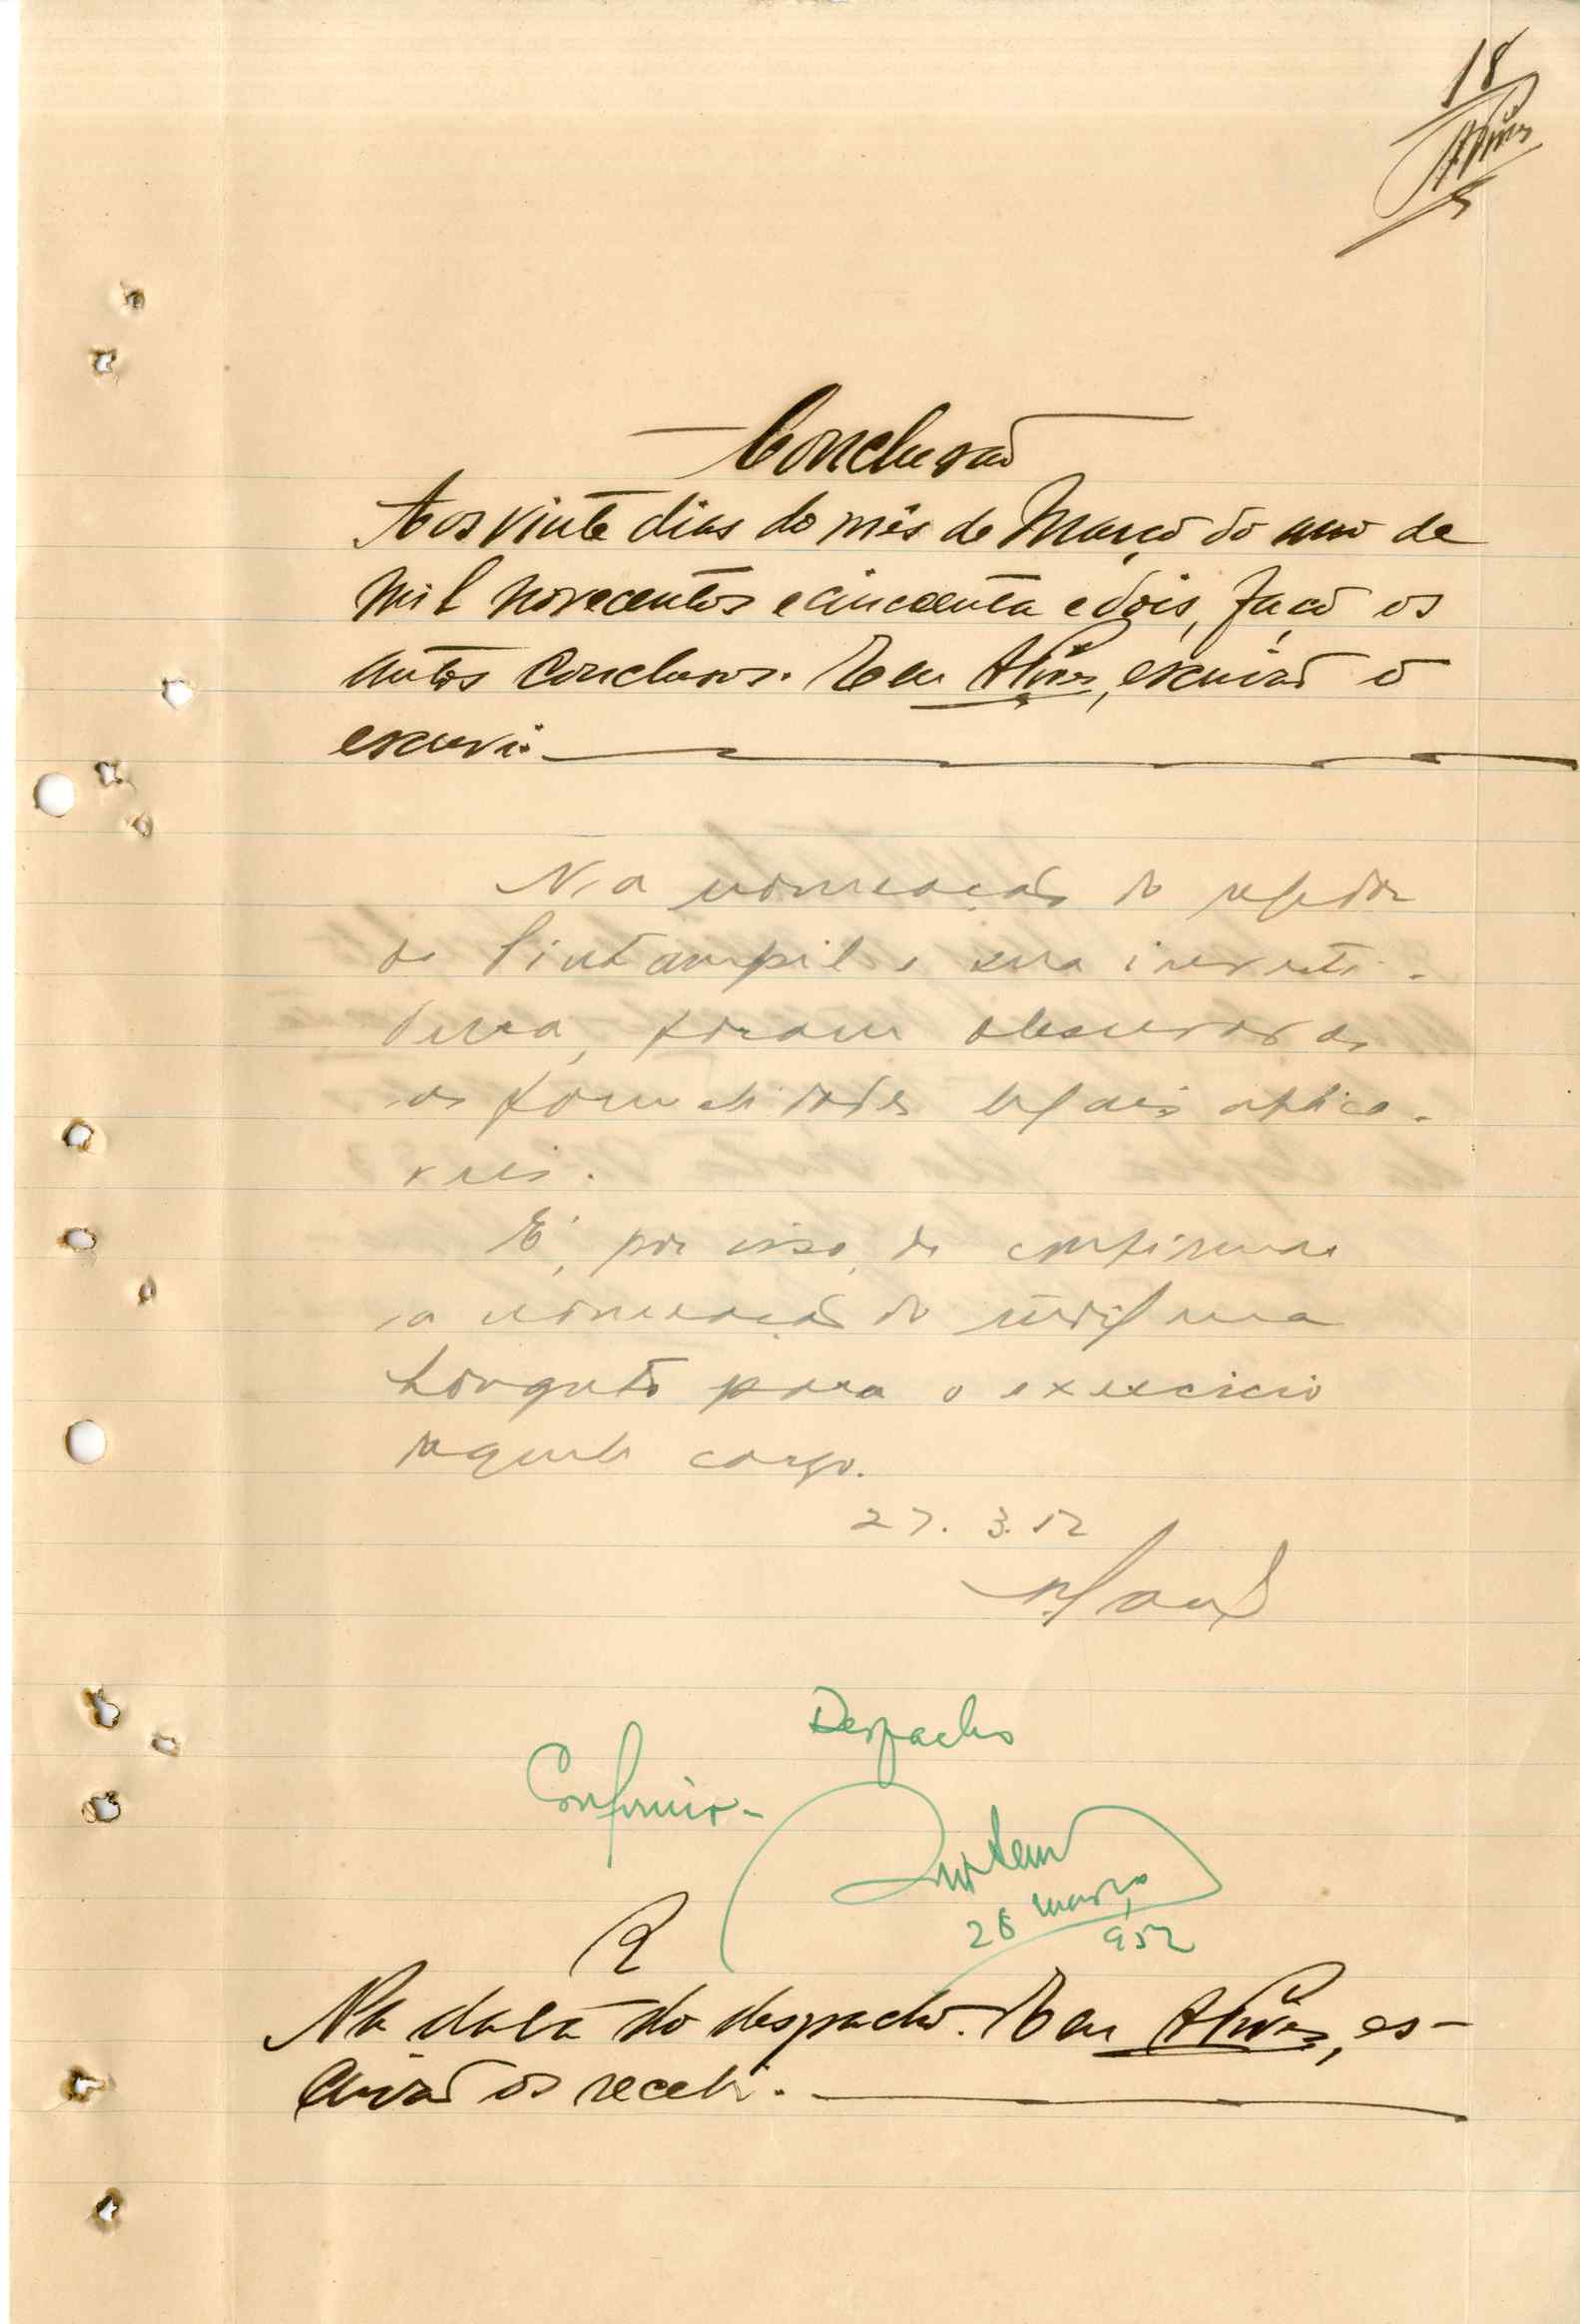 18
APires
Conclusão
Aos vinte dias do mês de Março do ano de
mil novecentos e cincoenta e dois, faço os
autos conclusos. E eu APires, escrivão o
escrevi.
Na nomeação do regedor
de e sua investi-
dura, foram observadas
as formalidades legais aplica-
veis.
É, por isso, de confirmar
a nomeação do indigena
para o exercicio
daquele cargo.
27. 3. 52
Despacho
Confirmo-
28 março
952
R
Na data do despacho. E eu APires, es-
crivão os recebi.